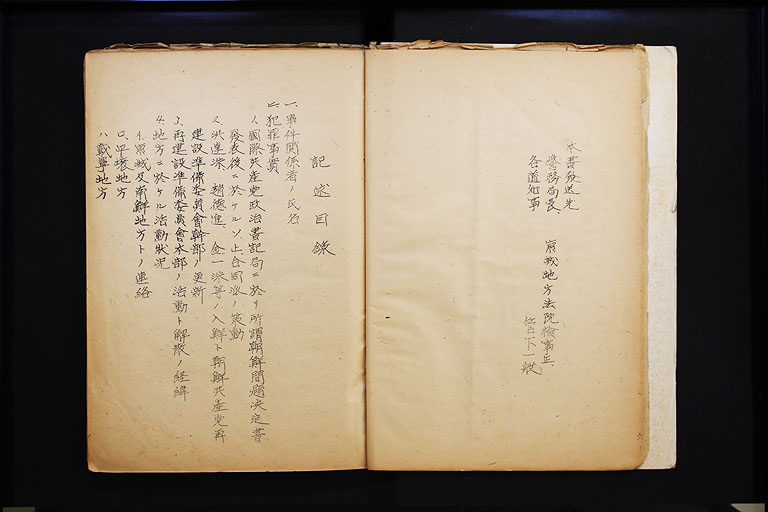 本書發送先
警務局長、 京城地方法院檢事正、
各道知事 管下一般
記述目録
一、事件關係者ノ氏名
二、犯罪事實
1、國際共産党政治書記局ニ於テ所謂朝鮮問題決定書
發表後ニ於ケルソ、上、合同派ノ策動
2、洪達洙、趙德進、金一洙等ノ入鮮ト朝鮮共産党再
建設準備委員會幹部ノ更新
3、再建設準備委員會本部ノ活動ト解散ノ経緯
4、地方ニ於ケル活動狀況
イ、京城及南鮮地方トノ連絡
ロ、平壤地方
ハ、載寧地方